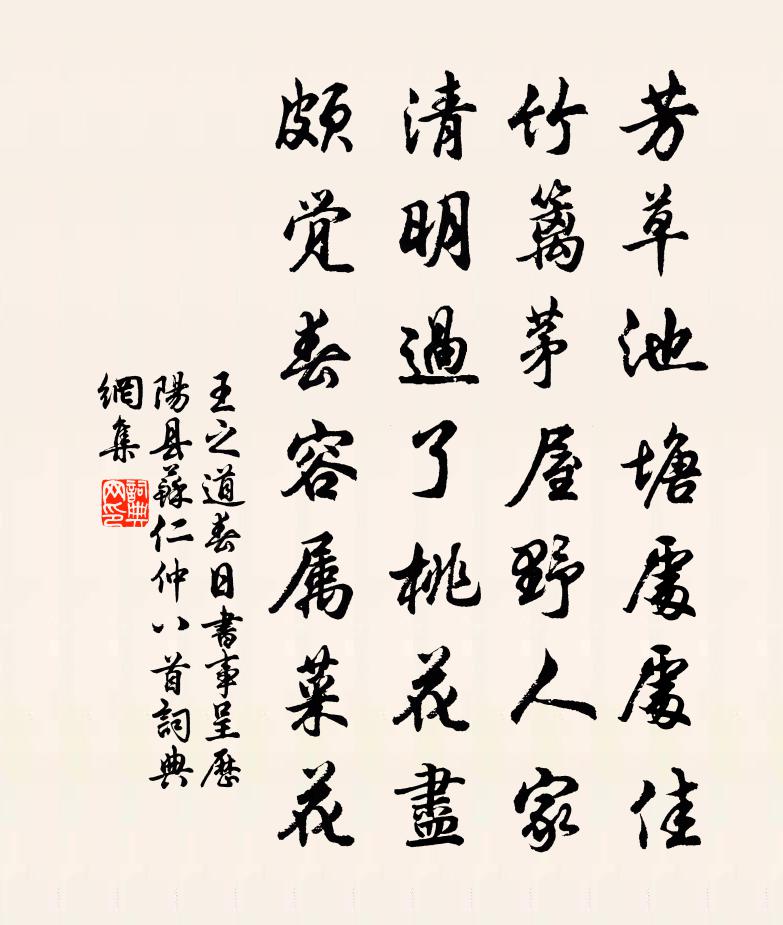 芳草池塘處處佳
竹籬茅屋野人家
清明過了桃花盡
颇覺春容属菜花
王之道春日書事呈歷
陽县蘇仁仲八首詞典
網集
詞典
网印